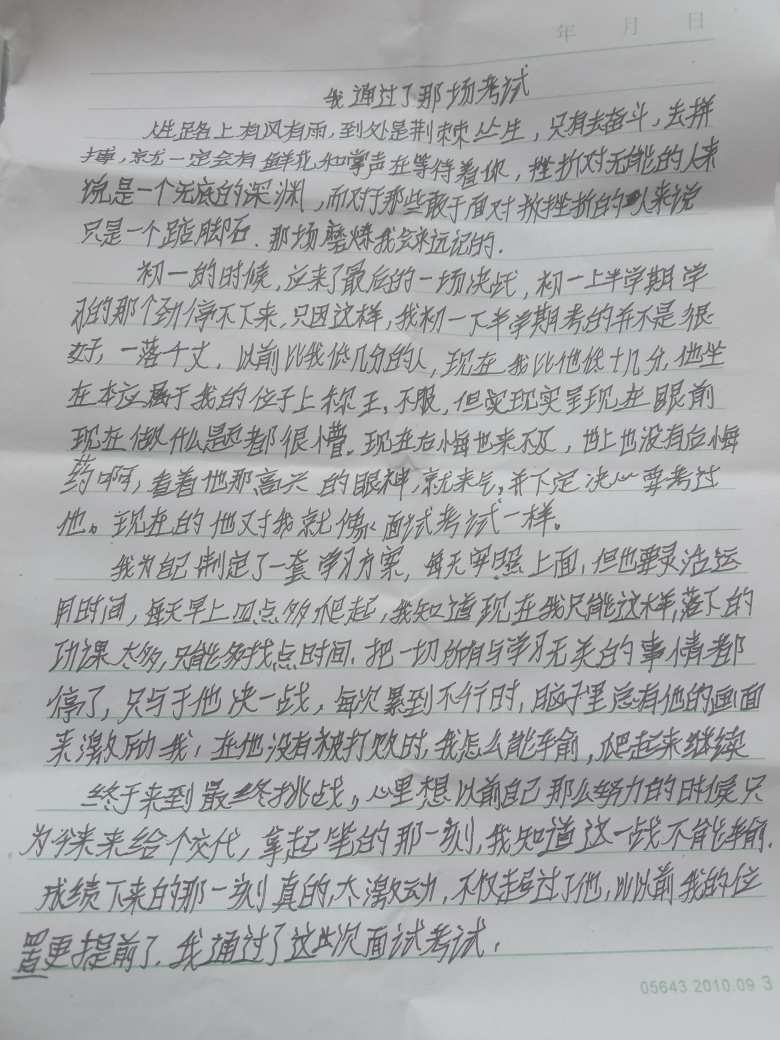 年 月 日
我通过了那场考试
人生路上有风有雨,到处是荆棘丛生,只有去奋斗,去拼
搏,就一定会有鲜花和掌声在等待着你,挫折对无能的人来
说是一个无底的深渊,而对于那些敢于面对挫折的人来说
只是一个踮脚石.那场磨炼我会永远记的.
初一的时候,迎来了最后的一场决战,初一上半学期学
习的那个劲停不下来,只因这样,我初一下半学期考的并不是很
好,一落千丈,以前比我低几分的人,现在我比他低十几分,他坐
在本应属于我的位子上称王.不服,但实现实呈现在眼前
现在做什么题都很懵.现在后悔也来不及,世上也没有后悔
药啊,看着他那高兴的眼神,就来气,并下定决心要考过
他。现在的他对我就像面试考试一样。
我为自己制定了一套学习方案,每天按照上面,但也要灵活运
用时间,每天早上四点多爬起,我知道现在我只能这样,落下的
功课太多,只能多找点时间.把一切所有与学习无关的事情都
停了,只与于他决一战,每次累到不行时,脑子里总有他的画面
来激励我,在他没有被打败时,我怎么能车前,爬起来继续
终于来到最终挑战,心里想以前自己那么努力的时候只
为今来来给个交代,拿起笔的那一刻,我知道这一战不能车前.
成绩下来的那一刻真的,太激动,不仅超过了他,比以前我的位
置更提前了.我通过了这次面试考试.
05643.2010.09 3